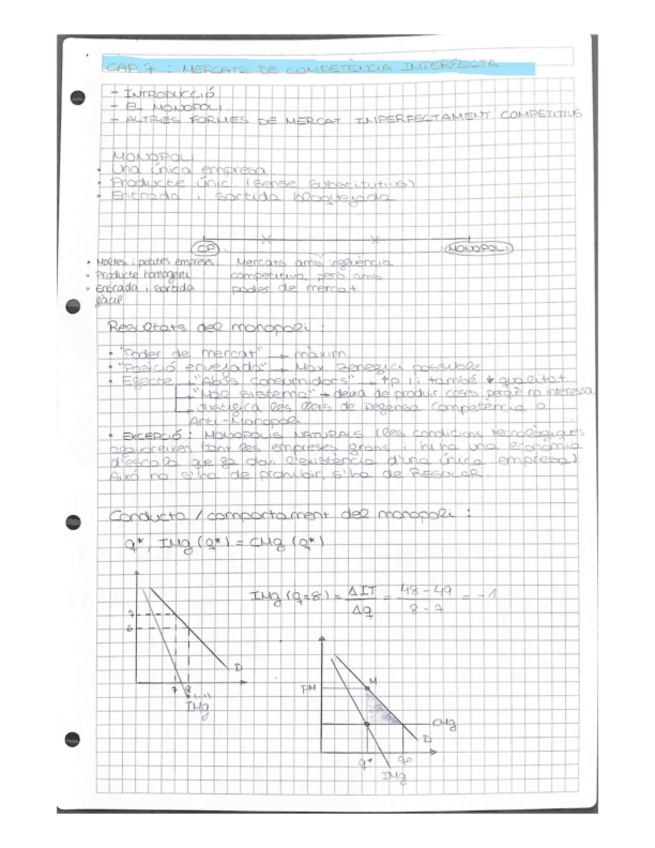 CAP. 7 : MERCATS DE COMPETÈNCIA IMPERFECTA
- INTRODUCCIÓ
- EL MONOPOLI
- ALTRES FORMES DE MERCAT IMPERFECTAMENT COMPETITIUS
MONOPOLI
• Una única empresa
• Producte únic (sense substitutius)
• Entrada i sortida bloquejada
CP
MONOPOLI
• Moltes i petites empreses
• Producte homogeni
• Entrada i sortida
fàcil
Mercats amb
competitiva però amb
poder de mercat
Resultats del monopoli :
• "Poder de mercat" → màxim
• "Posició envejada" → Màx Benefici possible
• Efecte → "Abús consumidors" → ↑p i també ↓ qualitat
→ "Mal sistema" → deixa de produir coses perquè no interessa
→ Justifica les lleis de Defensa Competència o
Anti-Monopoli
• EXCEPCIÓ : MONOPOLIS NATURALS (les condicions tecnològiques
afavoreixen tant les empreses grans i hi ha una economia
d'escala que fa dan l'existència d'una única empresa)
Això no s'ha de prohibir, s'ha de REGULAR
Conducta / comportament del monopoli :
q*, IMg (q*) = CMg (q*)
IMg (q=8) = ΔIT / Δq = 48 - 49 / 8 - 7 = -1
7
6
7 8
(-1)
D
IMg
PM
M
CMg
D
q*
IMg